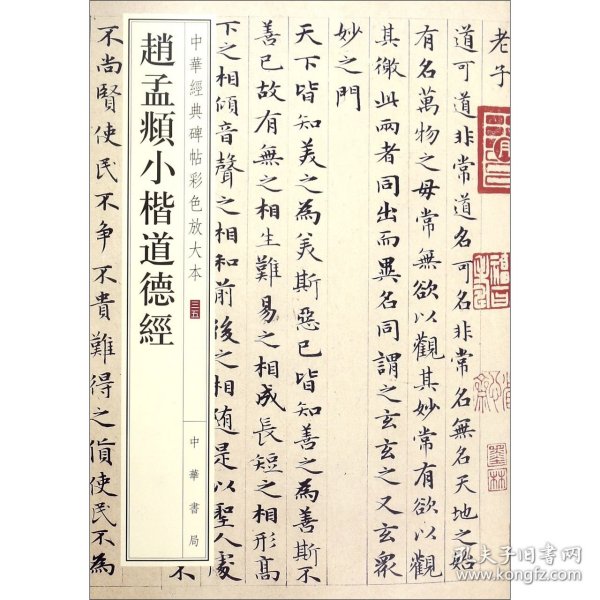 老子
道可道非常道名可名非常名無名天地之始
有名萬物之母常無欲以觀其妙常有欲以觀
其徼此兩者同出而異名同謂之玄玄之又玄衆
妙之門
天下皆知美之為美斯惡已皆知善之為善斯不
善已故有無之相生難易之相成長短之相形高
下之相傾音聲之相和前後之相随是以聖人處
不
中華經典碑帖彩色放大本 三五
中華書局
趙孟頫小楷道德經
不尚賢使民不争不貴難得之貨使民不為
墨林
孔夫子旧书网
kongfz.com